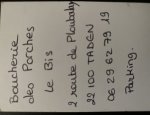 Boucherie
des Porches
Le Bis
2 route de Ploubalay
22 100 TADEN
06 29 62 79 19
Parking.